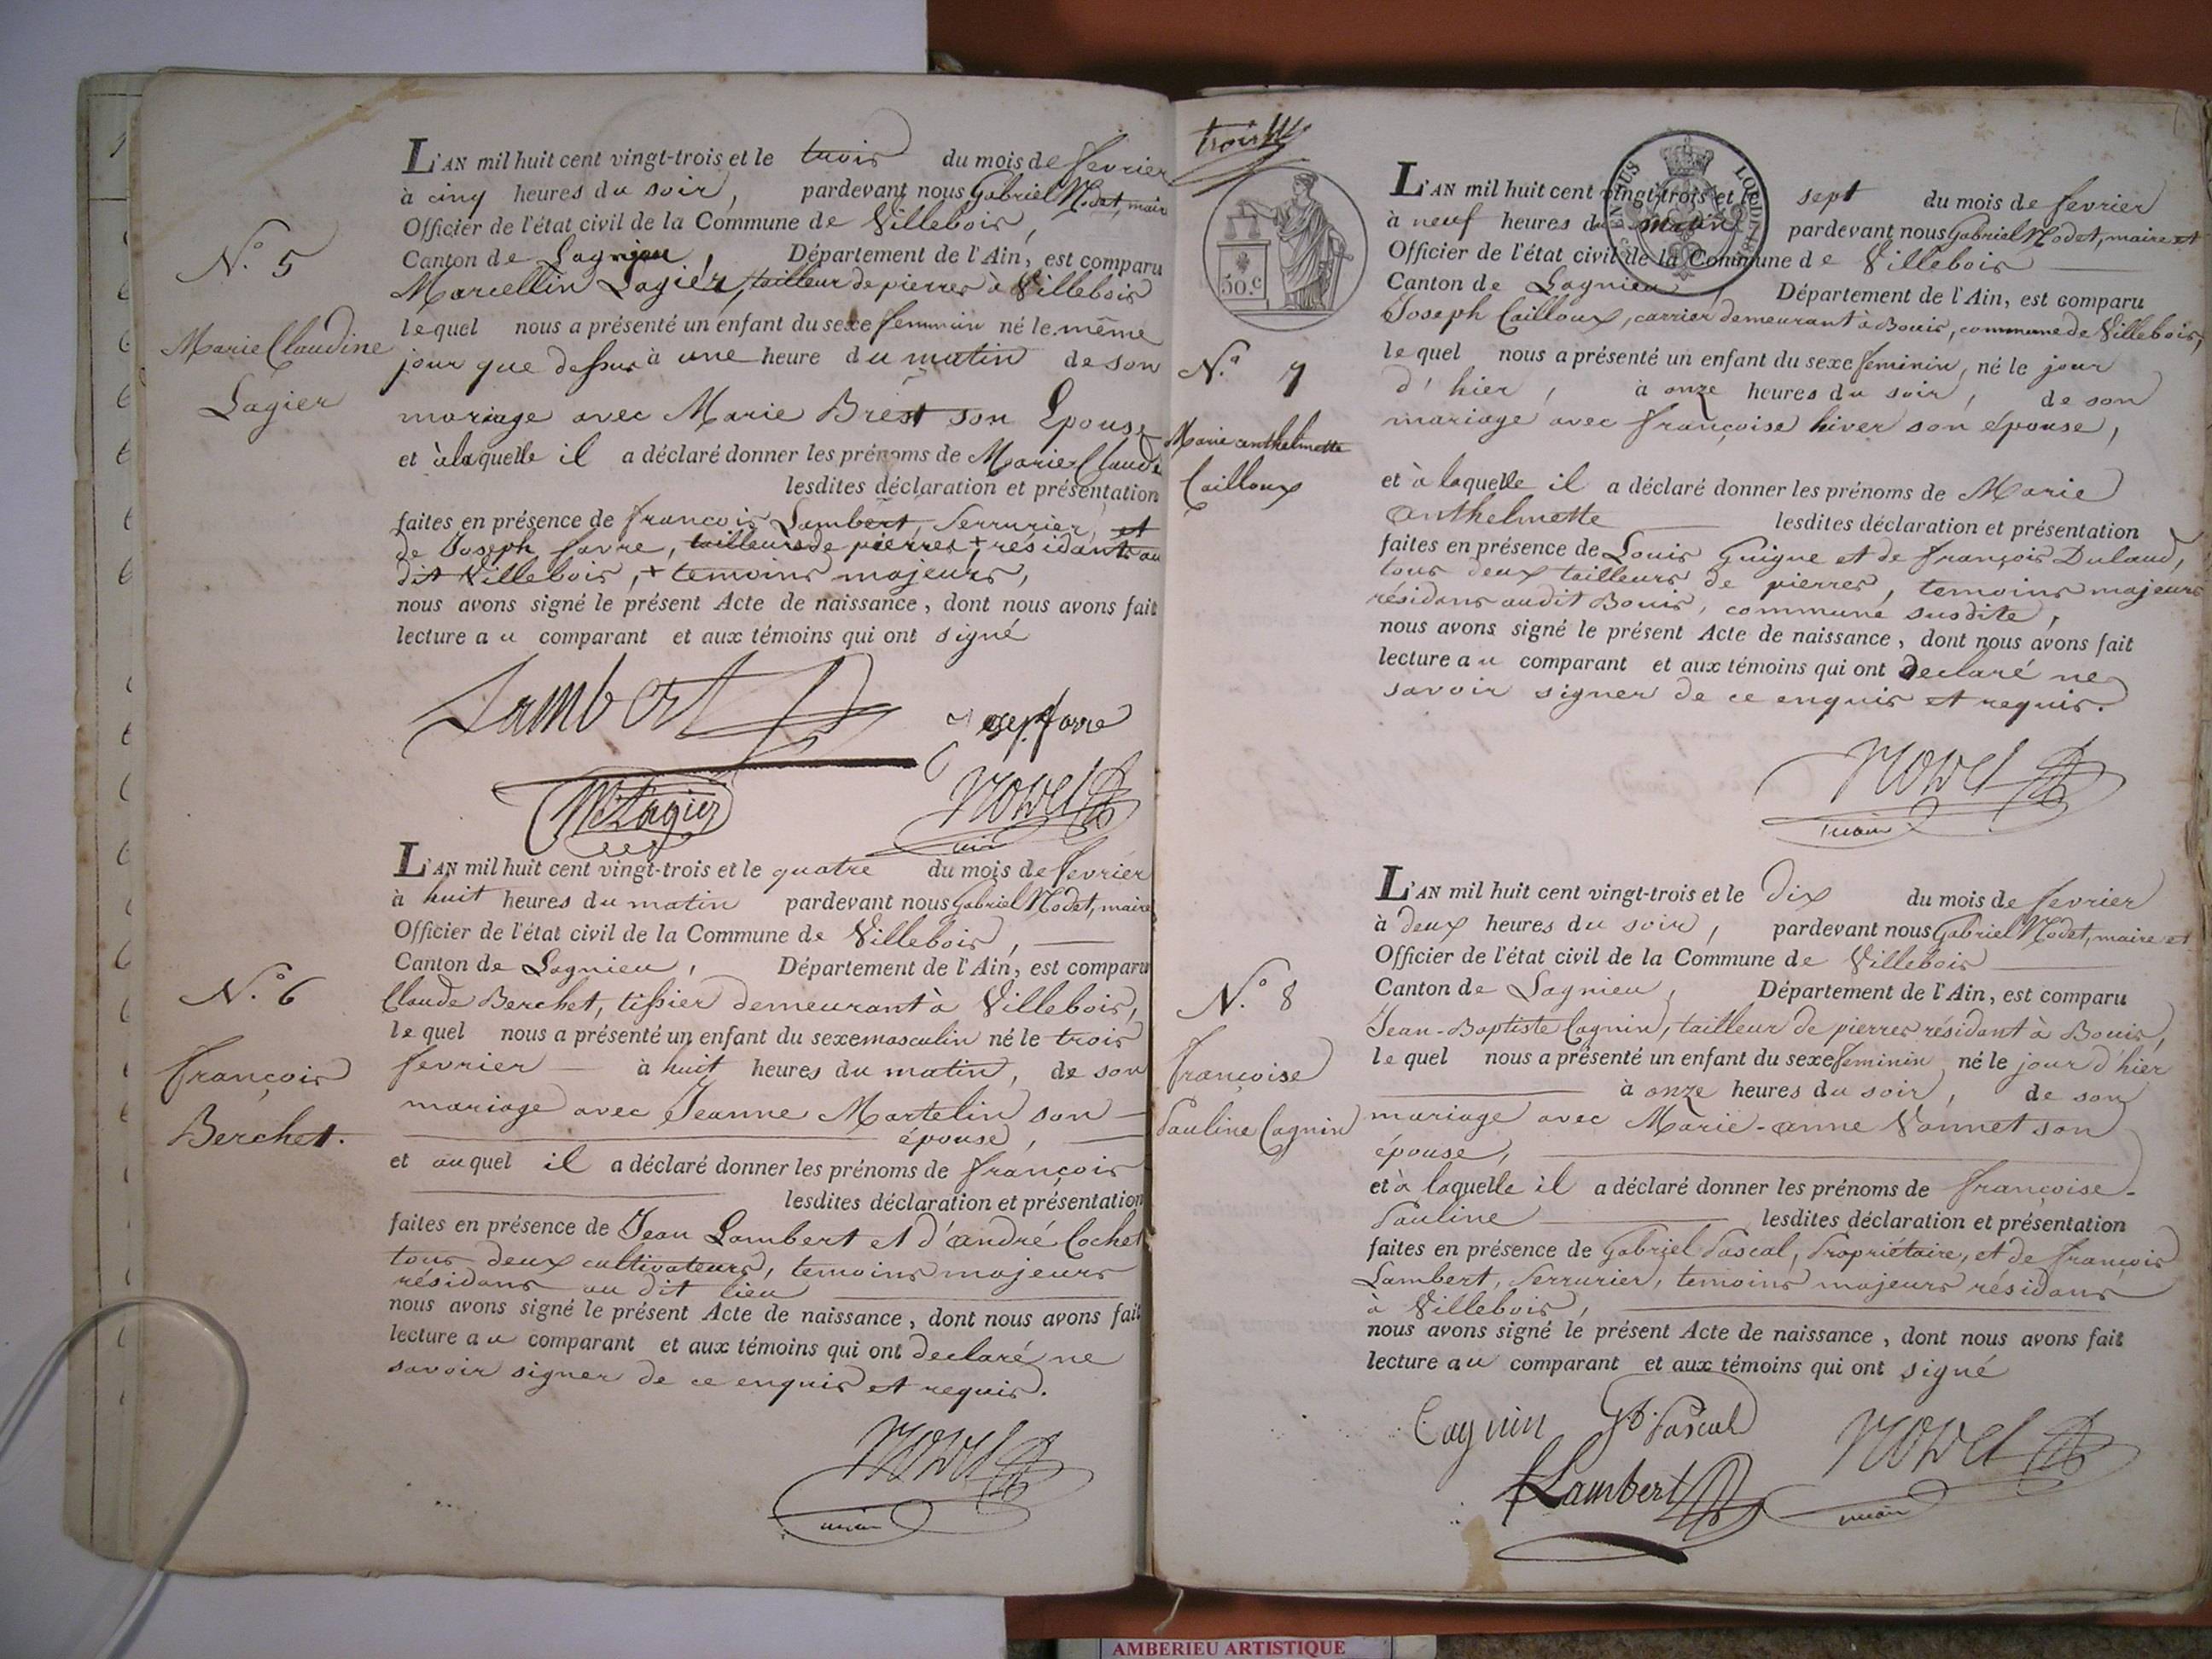 L'AN mil huit cent vingt-trois et le trois du mois de fevrier
à cinq heures du soir, pardevant nous Gabriel Nodet, maire
Officier de l'état civil de la Commune de Villebois,
Canton de Lagnieu, Département de l'Ain, est comparu
Marcellin Lagier, tailleur de pierres à Villebois
lequel nous a présenté un enfant du sexe feminin né le même
jour que dessus à une heure du matin de son
mariage avec Marie Brest son Epouse
et à laquelle il a déclaré donner les prénoms de Marie Claudine
lesdites déclaration et présentation
faites en présence de françois Lambert, Serrurier, et
de Joseph favre, tailleurs de pierres + résidants au
dit Villebois, + temoins majeurs,
nous avons signé le présent Acte de naissance, dont nous avons fait
lecture au comparant et aux témoins qui ont signé
N.º 5
Marie Claudine
Lagier
Lambert
Joseph favre
M Lagier
Nodet
maire
L'AN mil huit cent vingt-trois et le quatre du mois de fevrier
à huit heures du matin pardevant nous Gabriel Nodet, maire
Officier de l'état civil de la Commune de Villebois,
Canton de Lagnieu, Département de l'Ain, est comparu
Claude Berchet, tissier demeurant à Villebois,
lequel nous a présenté un enfant du sexe masculin né le trois
fevrier à huit heures du matin, de son
mariage avec Jeanne Martelin son
épouse,
et auquel il a déclaré donner les prénoms de françois
lesdites déclaration et présentation
faites en présence de Jean Lambert et d'andré Cochet
tous deux cultivateurs, temoins majeurs
résidans au dit lieu
nous avons signé le présent Acte de naissance, dont nous avons fait
lecture au comparant et aux témoins qui ont declaré ne
savoir signer de ce enquis et requis.
N.º 6
françois
Berchet.
Nodet
maire
trois
50.c
L'AN mil huit cent vingt-trois et le sept du mois de fevrier
à neuf heures du matin pardevant nous Gabriel Nodet, maire et
Officier de l'état civil de la Commune de Villebois
Canton de Lagnieu Département de l'Ain, est comparu
Joseph Cailloux, carrier demeurant à Bouis, commune de Villebois,
lequel nous a présenté un enfant du sexe feminin, né le jour
d'hier, à onze heures du soir, de son
mariage avec françoise hiver son épouse,
et à laquelle il a déclaré donner les prénoms de Marie
anthelmette lesdites déclaration et présentation
faites en présence de Louis Guigue et de françois Dulaud,
tous deux tailleurs de pierres, temoins majeurs
résidans audit Bouis, commune susdite,
nous avons signé le présent Acte de naissance, dont nous avons fait
lecture au comparant et aux témoins qui ont declaré ne
savoir signer de ce enquis et requis.
N.º 7
Marie anthelmette
Cailloux
Nodet
maire
L'AN mil huit cent vingt-trois et le dix du mois de fevrier
à deux heures du soir, pardevant nous Gabriel Nodet, maire et
Officier de l'état civil de la Commune de Villebois
Canton de Lagnieu, Département de l'Ain, est comparu
Jean-Baptiste Cagnin, tailleur de pierres résidant à Bouis,
lequel nous a présenté un enfant du sexe feminin né le jour d'hier
à onze heures du soir, de son
mariage avec Marie-anne Vannet son
épouse,
et à laquelle il a déclaré donner les prénoms de françoise-
Pauline lesdites déclaration et présentation
faites en présence de Gabriel Pascal, Propriétaire, et de françois
Lambert, Serrurier, temoins majeurs résidans
à Villebois,
nous avons signé le présent Acte de naissance, dont nous avons fait
lecture au comparant et aux témoins qui ont signé
N.º 8
françoise
Pauline Cagnin
Cagnin
Gb. Pascal
Nodet
fLambert
maire
AMBERIEU ARTISTIQUE